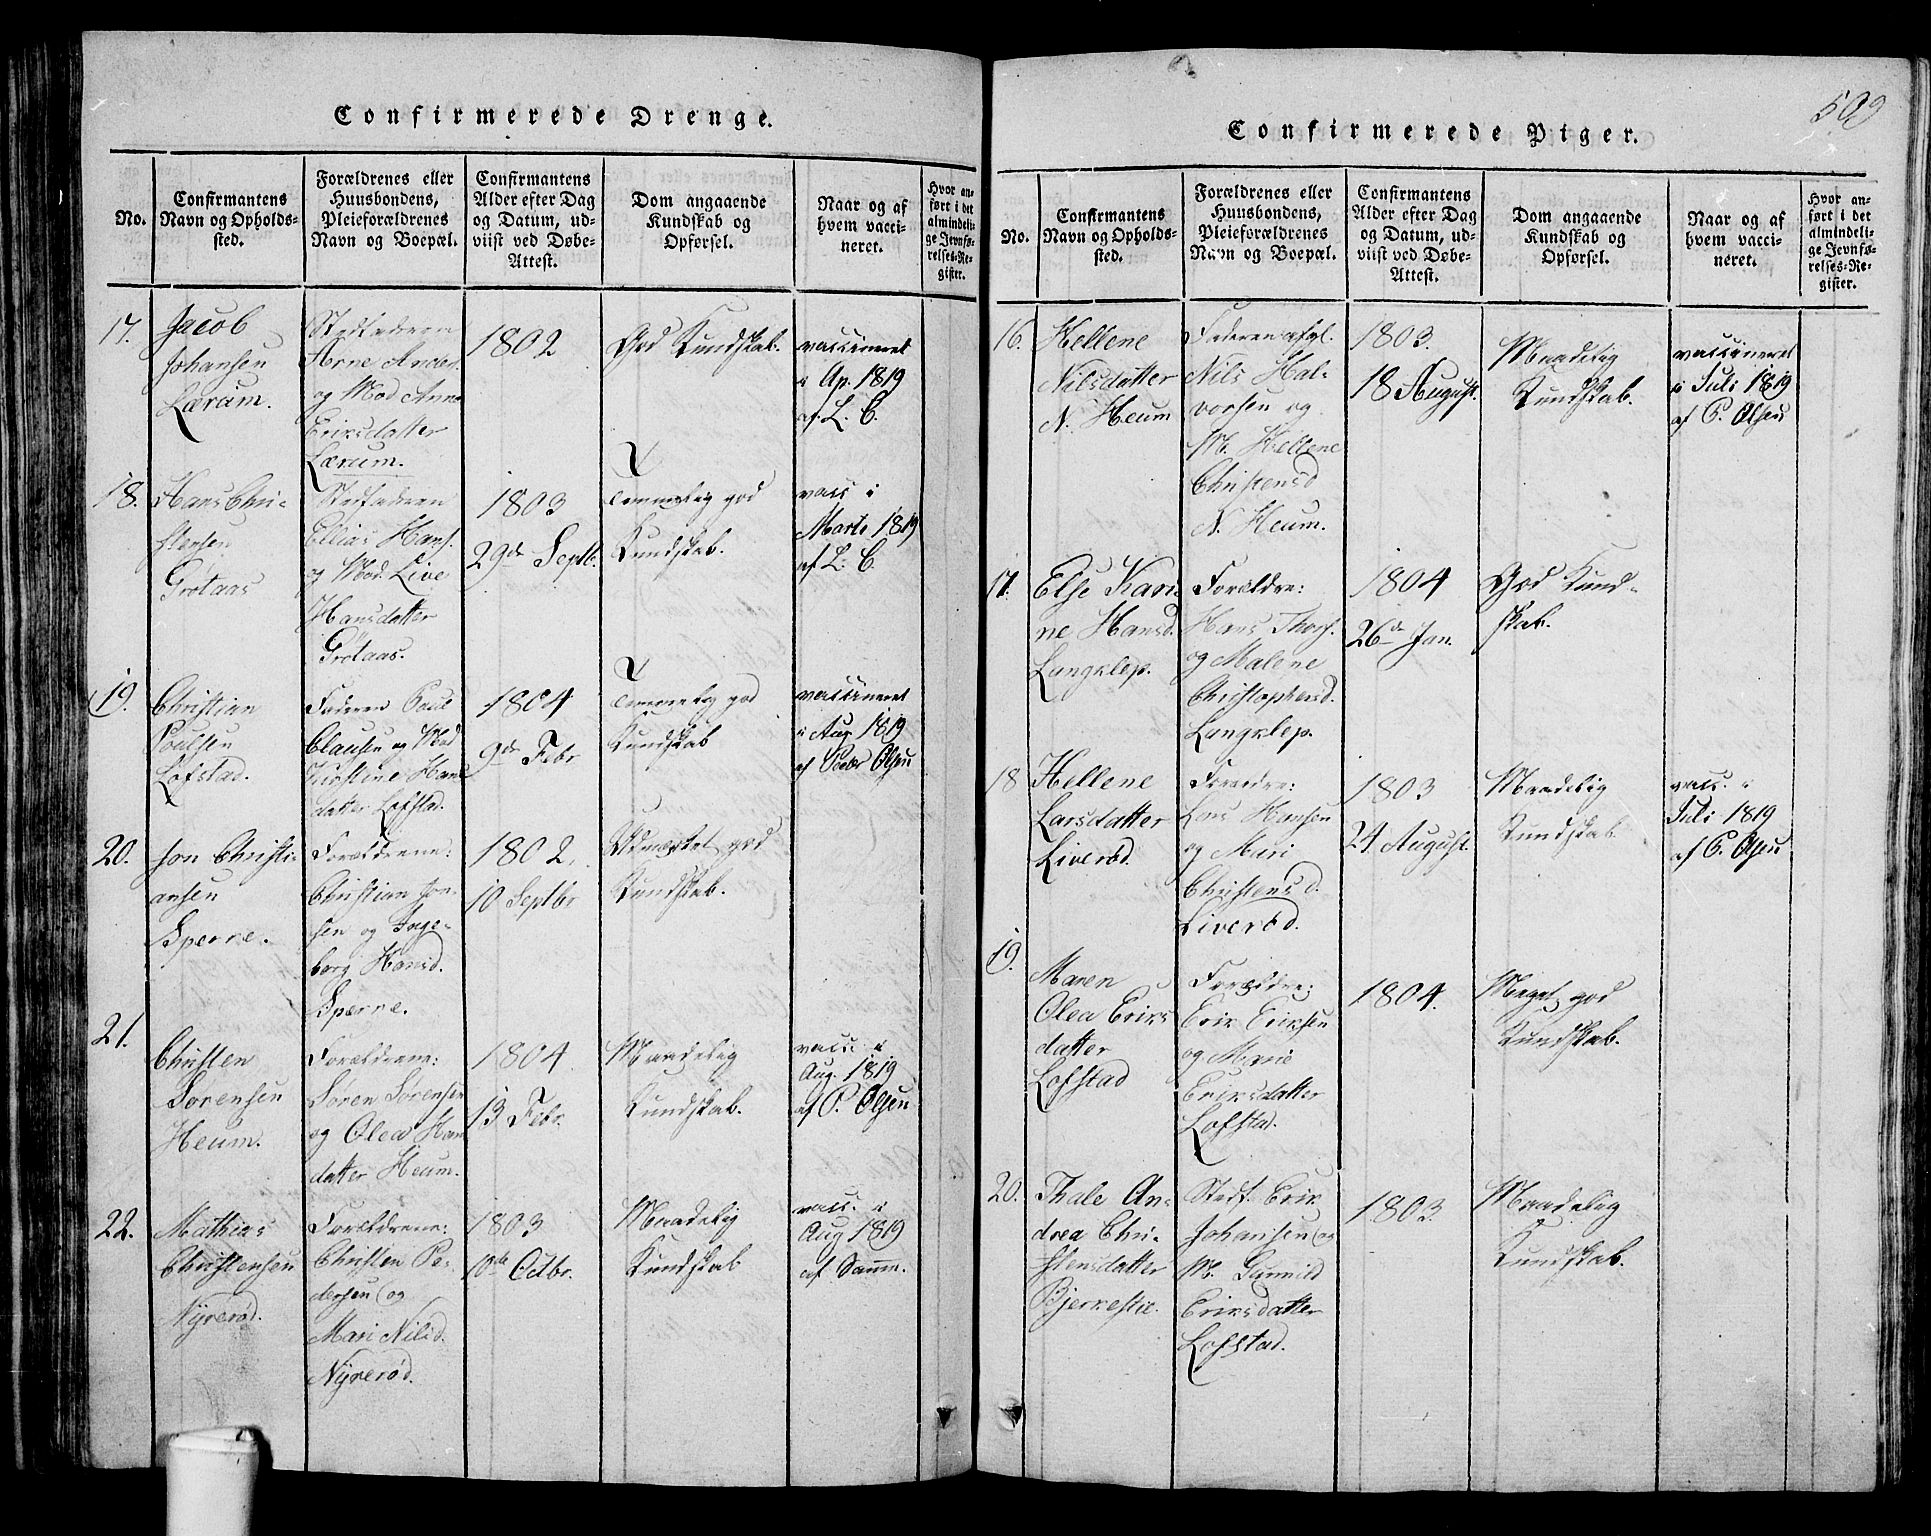 Confirmerede Drenge.
No.
Confirmantens
Navn og Opholds-
sted.
Forældrenes eller
Huusbondens,
Pleieforældrenes
Navn og Boepæl.
Confirmantens
Alder efter Dag
og Datum, ud-
viist ved Døbe-
Attest.
Dom angaaende
Kundskab og
Opførsel.
Naar og af
hvem vacci-
neret.
Hvor an-
ført i det
almindeli-
ge Jevnfø-
relses-Re-
gister.
17.
Jacob
Johansen
Lærum.
Stedfaderen
Arne Anders.
og Mod Anne
Eriksdatter
Lærum.
1802
God Kundskab.
vaccineret
i Ap. 1819
af L. C.
18.
Hans Chri-
stensen
Grøtaas
Stedfaderen
Ellias Hans.
og Mod. Live
Hansdatter
Grøtaas.
1803
29de Septb.
Temmelig god
Kundskab.
vacc i
Marts 1819
af L. C.
19.
Christian
Poulsen
Lofstad.
Faderen Poul
Clausen og Mod
Kirstine Hans
datter Lofstad.
1804
9de Febr
Temmelig god
Kundskab
vaccineret
i Aug 1819
af Peder Olsen
20.
Jon Christi-
ansen
Sperre.
Forældrene:
Christian Jon-
sen og Inge-
borg Hansd.
Sperre.
1802.
10 Septbr
Udmærket god
Kundskab.
21.
Christen
Sørensen
Heum.
Forældrene:
Søren Sørensen
og Olea Han
datter Heum.
1804
13 Febr.
Maadelig
Kundskab.
vacc. i
Aug. 1819
af P. Olsen
22.
Mathias
Christensen
Nyrerød.
Forældrene:
Christen Pe-
dersen og
Mari Nilsd.
Nyrerød.
1803
10de Octbr.
Maadelig
Kundskab
vacc. i
Aug 1819
af Samme.
509
Confirmerede Piger.
No.
Confirmantens
Navn og Opholds-
sted.
Forældrenes eller
Huusbondens,
Pleieforældrenes
Navn og Boepæl.
Confirmantens
Alder efter Dag
og Datum, ud-
viist ved Døbe-
Attest.
Dom angaaende
Kundskab og
Opførsel.
Naar og af
hvem vacci-
neret.
Hvor an-
ført i det
almindeli-
ge Jevnfø-
relses-Re-
gister.
16.
Hellene
Nilsdatter
N. Heum
Faderen afgl.
Nils Hal-
vorsen og
M. Hellene
Christensd
N. Heum.
1803.
18 August.
Maadelig
Kundskab.
vaccineret
i Juli 1819
af P. Olsen
17.
Else Kari
ne Hansd.
Langklep.
Forældre:
Hans Thors.
og Malene
Christophersd.
Langklep.
1804
26de Jan.
God Kund-
skab.
18
Hellene
Larsdatter
Liverød
Forældre:
Lars Hansen
og Mari
Christensd.
Liverød.
1803
24 August.
Maadelig
Kundskab
vacc. i
Juli 1819
af P. Olsen
19.
Maren
Olea Eriks
datter
Lofstad
Forældre:
Erik Eriksen
og Marie
Eriksdatter
Lofstad.
1804.
Meget god
Kundskab.
20.
Thale An-
drea Chri-
stensdatter
Bjerkestie.
Stedf. Erik
Johansen og
M. Gunnild
Eriksdatter
Lofstad.
1803.
Maadelig
Kundskab.